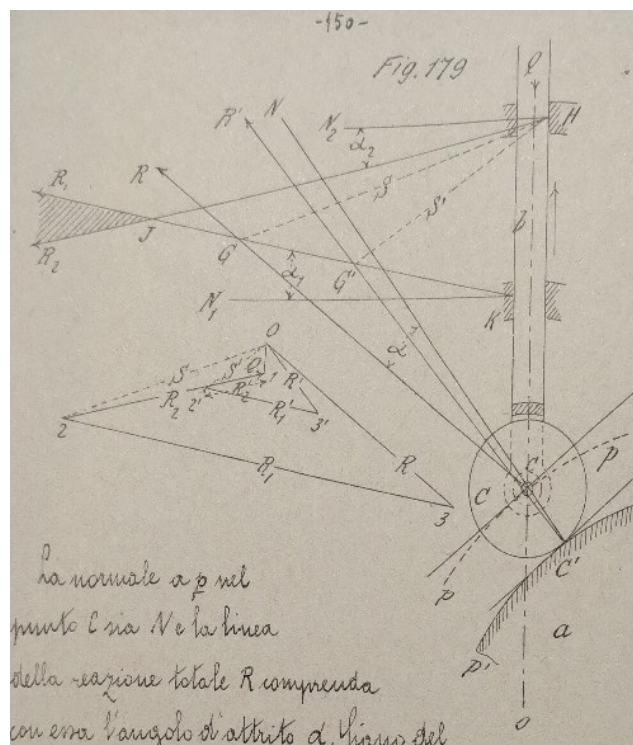 -150-
Fig. 179
Q
R' N
N₂
H
α₂
R
S
R₁
S'
b
J
R₂
G
α₁
G'
N₁
K
O
α
S
S' Q 1
R₂ R'
2' R₂'
R₁' 3'
2
R₁
R
3
C
C
p
C'
p
a
p'
o
La normale a p nel
punto C sia N e la linea
della reazione totale R comprenda
con essa l'angolo d'attrito α. Siano del